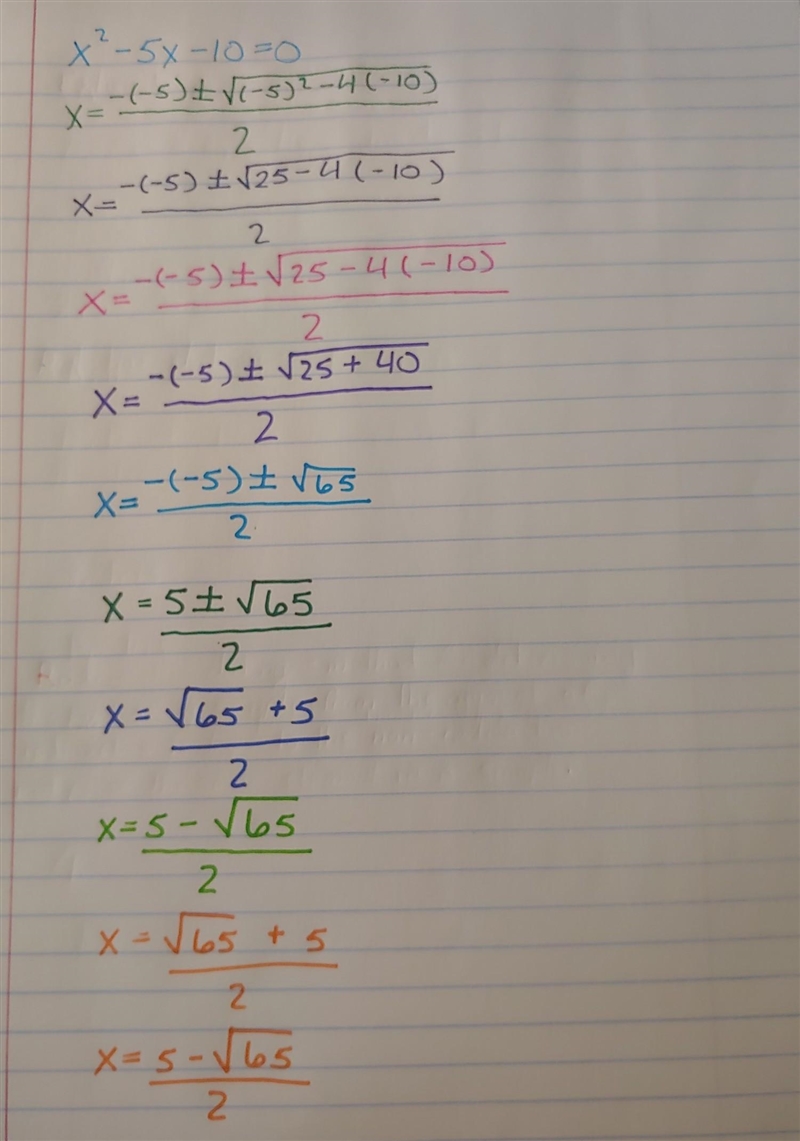 x² - 5x - 10 = 0
x = (-(-5) ± √((-5)² - 4(-10))) / 2
x = (-(-5) ± √(25 - 4(-10))) / 2
x = (-(-5) ± √(25 - 4(-10))) / 2
x = (-(-5) ± √(25 + 40)) / 2
x = (-(-5) ± √65) / 2
x = (5 ± √65) / 2
x = (√65 + 5) / 2
x = (5 - √65) / 2
x = (√65 + 5) / 2
x = (5 - √65) / 2